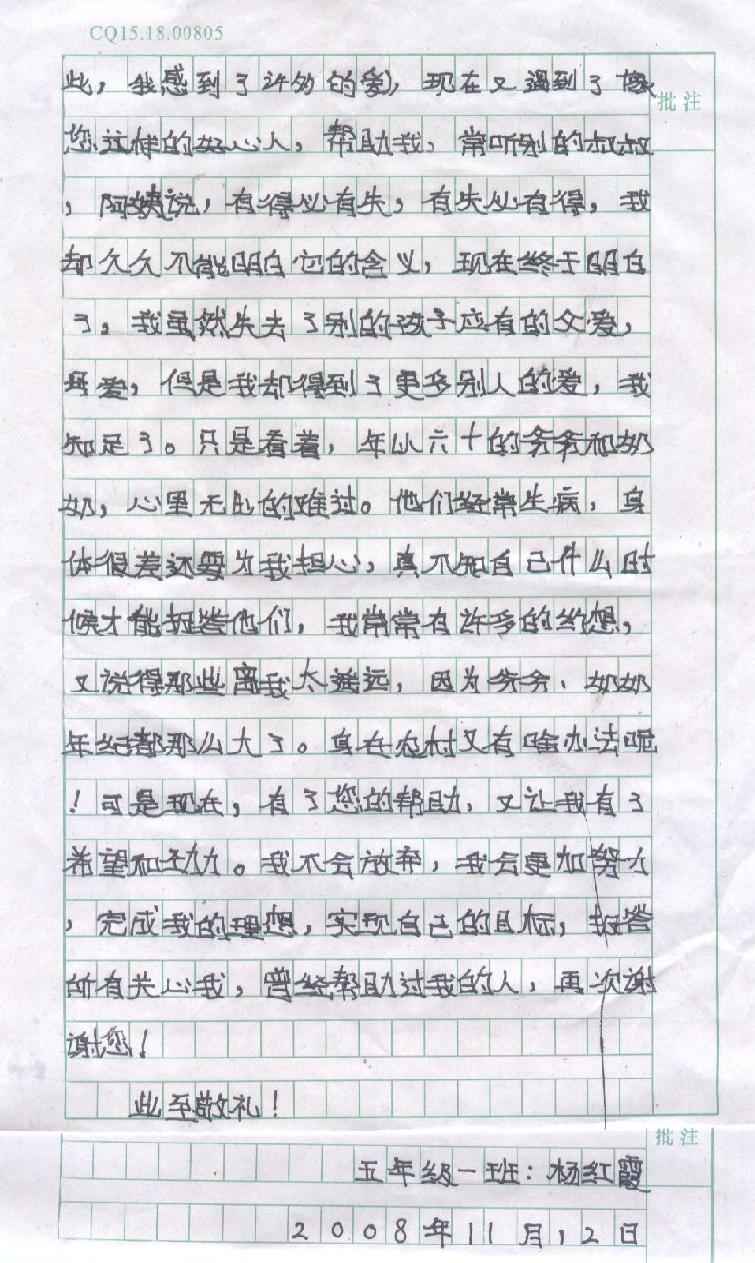 CQ15.18.00805
批注
此，我感到了许多的爱，现在又遇到了像
您这样的好心人，帮助我，常听别的叔叔
，阿姨说，有得必有失，有失必有得，我
却久久不能明白它的含义，现在终于明白
了。我虽然失去了别的孩子应有的父爱，
母爱，但是我却得到了更多别人的爱，我
知足了。只是看着，年以六十的爷爷和奶
奶，心里无比的难过。他们经常生病，身
体很差还要为我担心，真不知自己什么时
候才能报答他们，我常常有许多的幻想，
又说得那些离我太遥远，因为爷爷、奶奶
年纪都那么大了。身在农村又有啥办法呢
！可是现在，有了您的帮助，又让我有了
希望和动力。我不会放弃，我会更加努力
，完成我的理想，实现自己的目标，报答
所有关心我，曾经帮助过我的人，再次谢
谢您！
此至敬礼！
批注
五年级一班：杨红霞
2008年11月12日